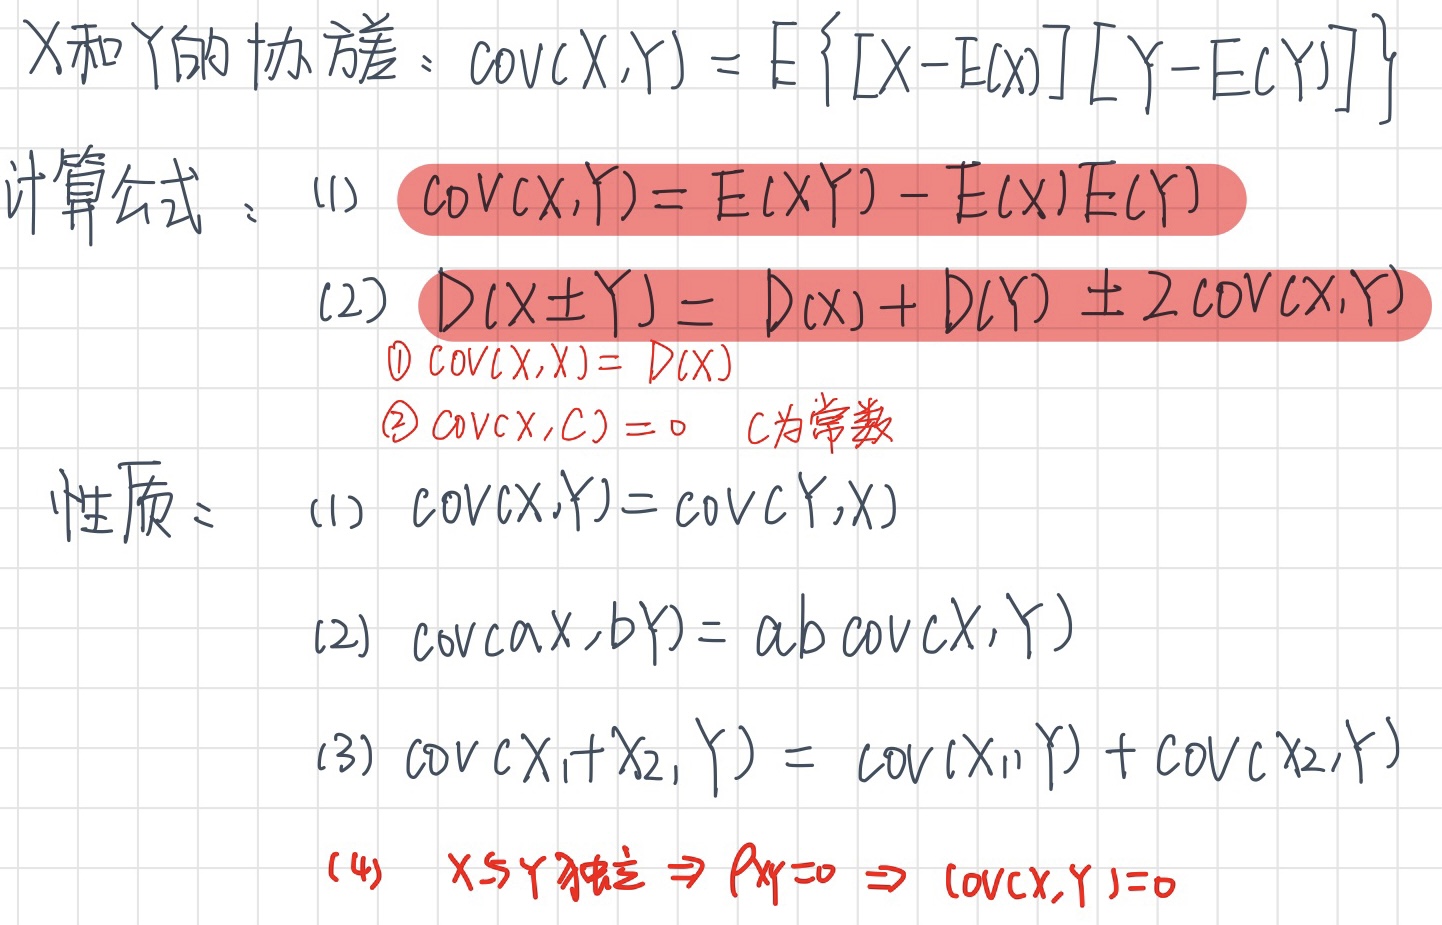 X和Y的协方差：COV(X,Y) = E{[X-E(X)][Y-E(Y)]}
计算公式：(1) COV(X,Y) = E(XY) - E(X)E(Y)
(2) D(X±Y) = D(X) + D(Y) ± 2COV(X,Y)
① COV(X,X) = D(X)
② COV(X,C) = 0 C为常数
性质：(1) COV(X,Y) = COV(Y,X)
(2) COV(aX,bY) = abCOV(X,Y)
(3) COV(X₁+X₂,Y) = COV(X₁,Y) + COV(X₂,Y)
(4) X与Y独立 ⇒ ρXY=0 ⇒ COV(X,Y)=0